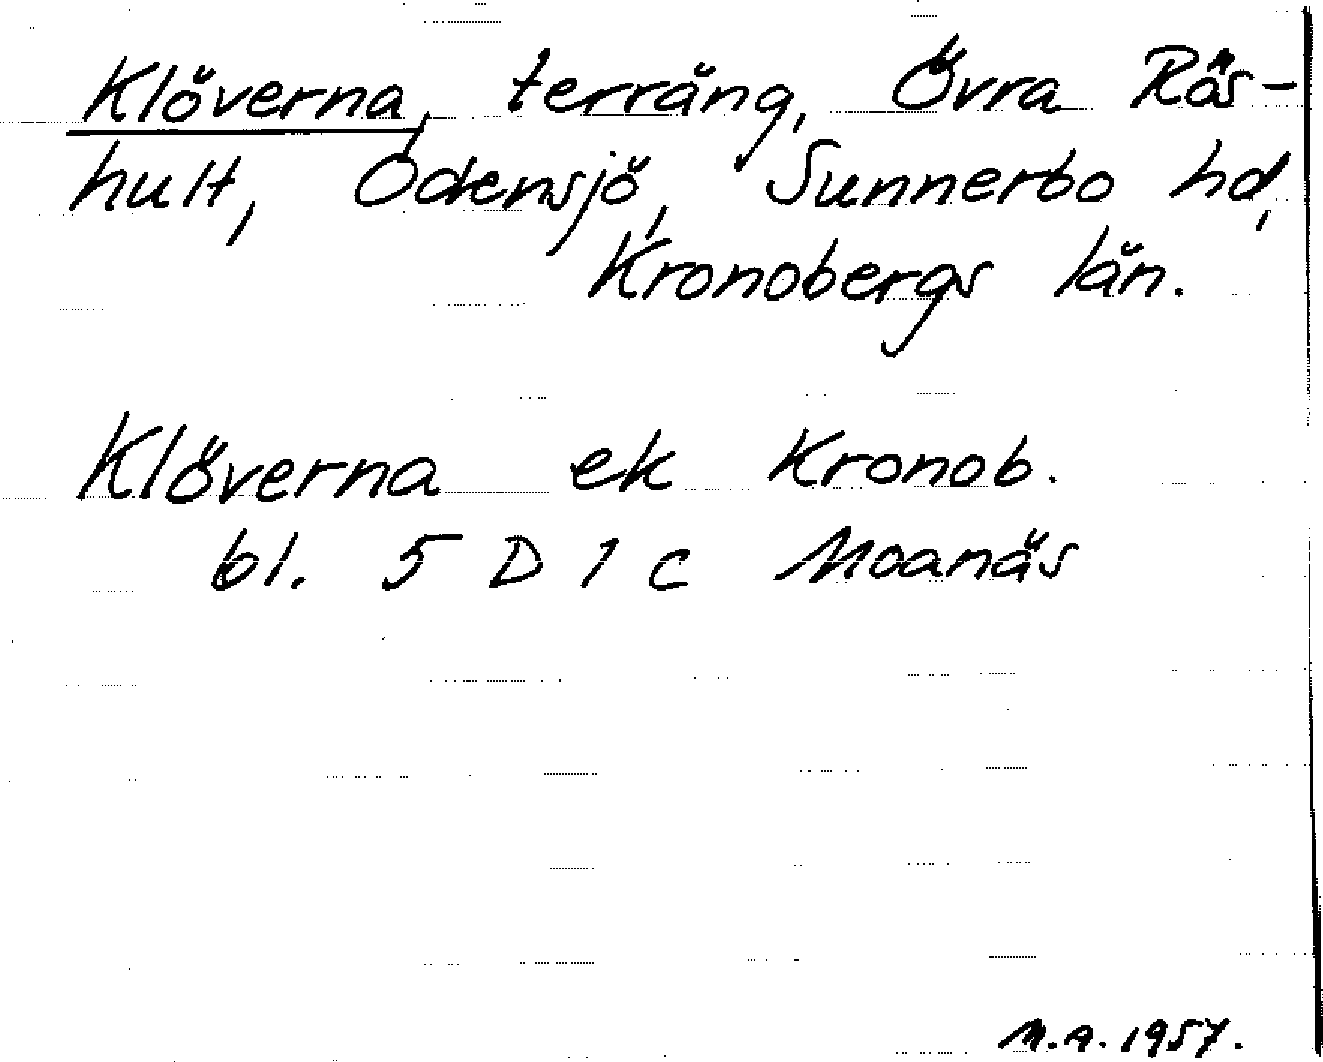 Klöverna, terräng, Övra Rös-
hult, Odensjö, Sunnerbo hd,
Kronobergs län.
Klöverna ek Kronob.
bl. 5 D 1 c Moanäs
M.A. 1957.